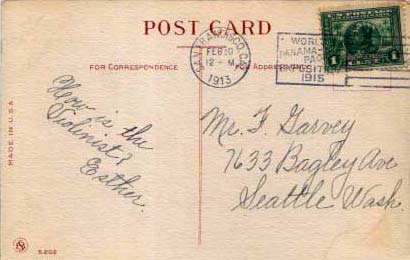 POST CARD
SAN FRANCISCO, CAL.
FEB 20
12 - M
1913
WORLD'S
PANAMA-PACIFIC
EXPOSITION
1915
U.S. POSTAGE
1
1
FOR CORRESPONDENCE
FOR ADDRESS
How is the
Violinist?
Esther.
Mr. F. Garvey
7633 Bagley Ave
Seattle Wash.
MADE IN U.S.A.
5202